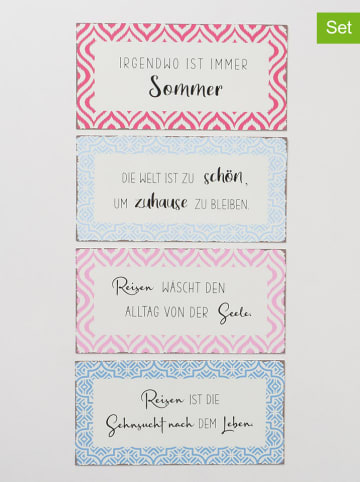 Set
IRGENDWO IST IMMER
Sommer
DIE WELT IST ZU schön,
UM zuhause ZU BLEIBEN.
Reisen WASCHT DEN
ALLTAG VON DER Seele.
Reisen IST DIE
Sehnsucht nach DEM Leben.